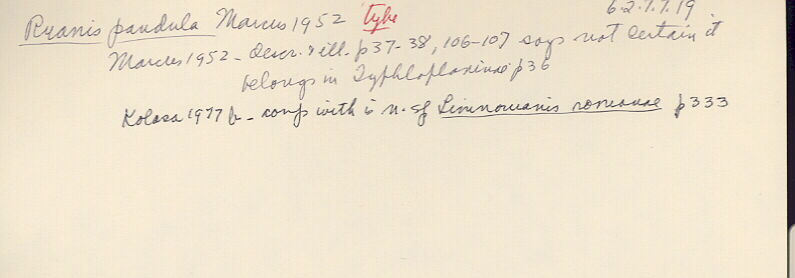 6.2.7.7.19
Ryanis pandula Marcus 1952 type
Marcus 1952 - descr. & ill. p 37-38, 106-107 says not certain it
belongs in Typhloplaninae p 36
Kolasa 1977 b - comp with is n. sf Limnoruanis romanae p 333